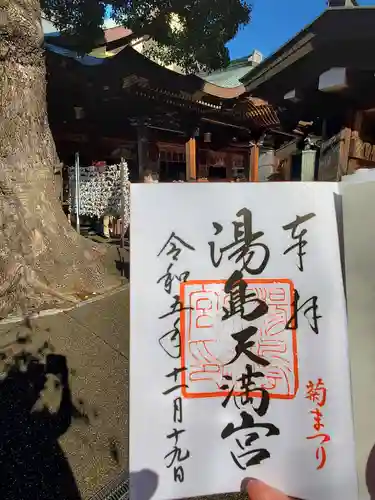 奉拝
菊まつり
湯島天満宮
令和五年十一月十九日